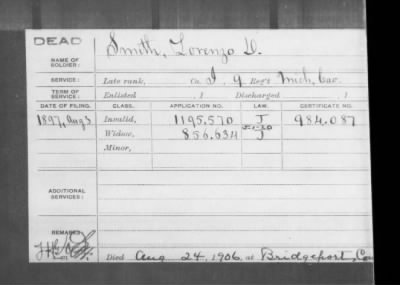 DEAD
NAME OF SOLDIER: Smith, Lorenzo D.
SERVICE: Late rank, Co. I, 9 Reg't Mich. Cav.
TERM OF SERVICE: Enlisted , 1 Discharged , 1
DATE OF FILING. CLASS. APPLICATION NO. LAW. CERTIFICATE NO.
1897, Aug 3 Invalid, 1195.570 J 984.087
Widow, 856.634 J
Minor,
ADDITIONAL SERVICES:
REMARKS:
Died Aug 24, 1906, at Bridgeport,